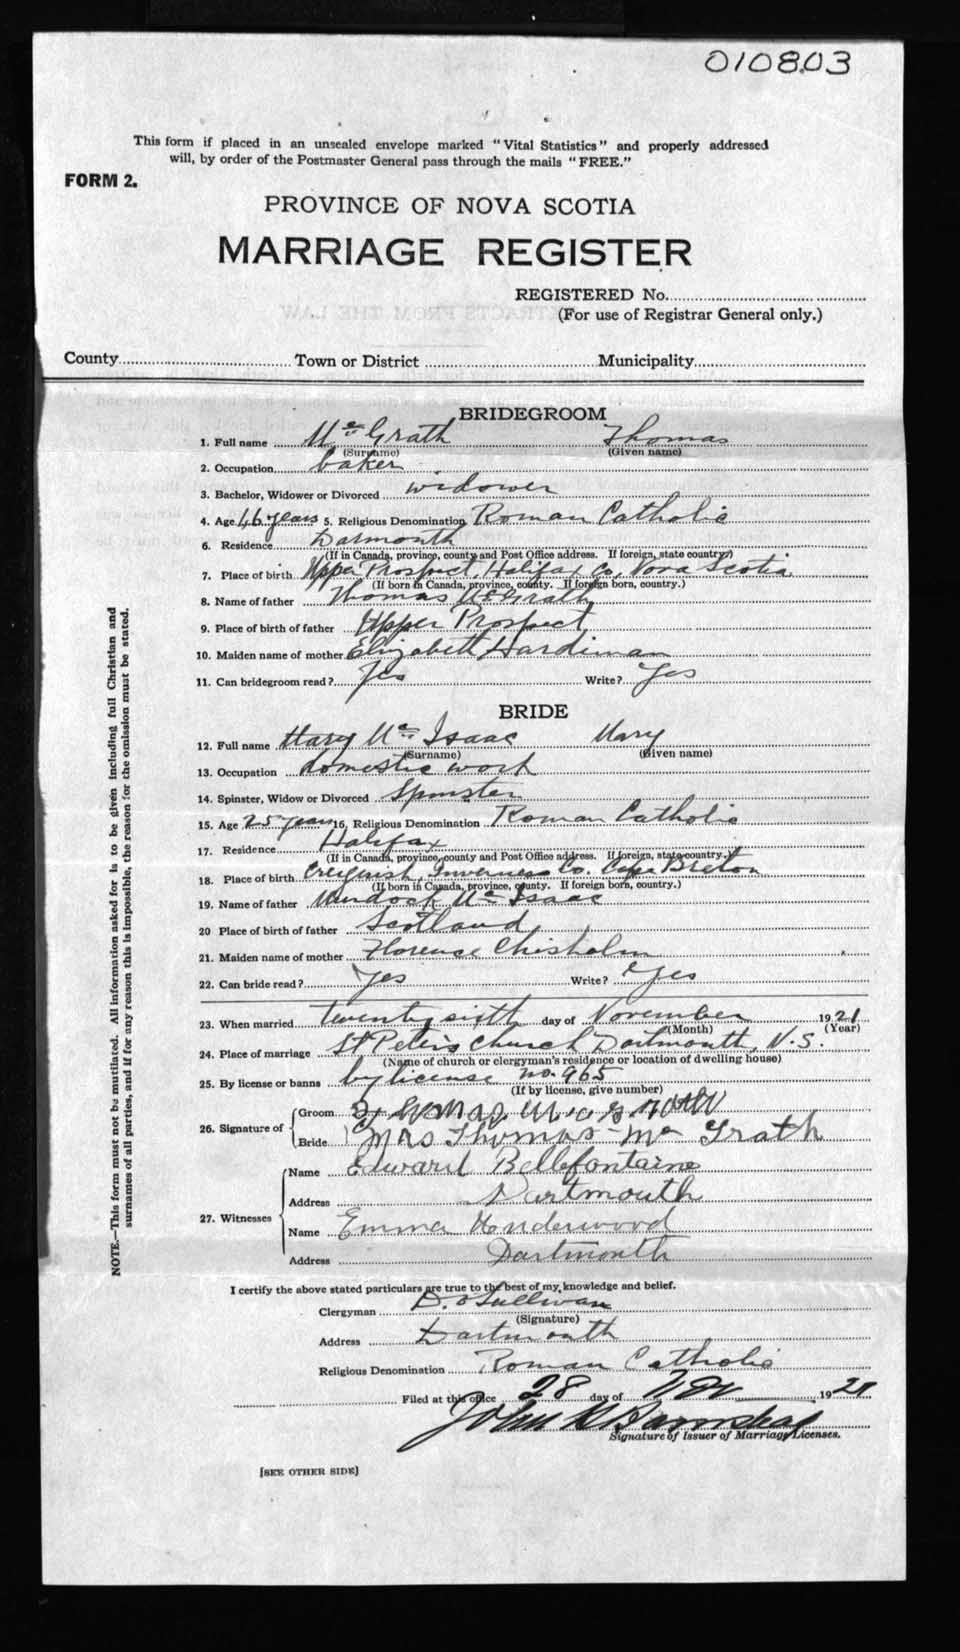 010803
This form if placed in an unsealed envelope marked "Vital Statistics" and properly addressed
will, by order of the Postmaster General pass through the mails "FREE."
FORM 2.
PROVINCE OF NOVA SCOTIA
MARRIAGE REGISTER
REGISTERED No.
(For use of Registrar General only.)
County Town or District Municipality
BRIDEGROOM
1. Full name McGrath Thomas
(Surname) (Given name)
2. Occupation baker
3. Bachelor, Widower or Divorced widower
4. Age 46 years 5. Religious Denomination Roman Catholic
6. Residence Darmouth
(If in Canada, province, county and Post Office address. If foreign, state country.)
7. Place of birth Upper Prospect, Halifax Co, Nova Scotia
(If born in Canada, province, county. If foreign born, country.)
8. Name of father Thomas McGrath
9. Place of birth of father Upper Prospect
10. Maiden name of mother Elizabeth Hardiman
11. Can bridegroom read? Yes Write? Yes
BRIDE
12. Full name Mary McIsaac Mary
(Surname) (Given name)
13. Occupation domestic work
14. Spinster, Widow or Divorced Spinster
15. Age 25 years 16. Religious Denomination Roman Catholic
17. Residence Halifax
(If in Canada, province, county and Post Office address. If foreign, state country.)
18. Place of birth Creignish, Inverness Co. Cape Breton
(If born in Canada, province, county. If foreign born, country.)
19. Name of father Murdock McIsaac
20 Place of birth of father Scotland
21. Maiden name of mother Florence Chisholm
22. Can bride read? Yes Write? Yes
23. When married twenty sixth day of November 1921
(Month) (Year)
24. Place of marriage St Peter's Church Dartmouth, N.S.
(Name of church or clergyman's residence or location of dwelling house)
25. By license or banns by license no. 965
(If by license, give number)
26. Signature of
Groom Thomas McGrath
Bride Mrs Thomas McGrath
27. Witnesses
Name Edward Bellefontaine
Address Dartmouth
Name Emma Underwood
Address Dartmouth
I certify the above stated particulars are true to the best of my knowledge and belief.
Clergyman D. O'Sullivan
(Signature)
Address Dartmouth
Religious Denomination Roman Catholic
Filed at this office 28 day of Nov 1921
John
Signature of Issuer of Marriage Licenses.
[SEE OTHER SIDE]
NOTE.—This form must not be mutilated. All information asked for is to be given including full Christian and
surnames of all parties, and if for any reason this is impossible, the reason for the omission must be stated.